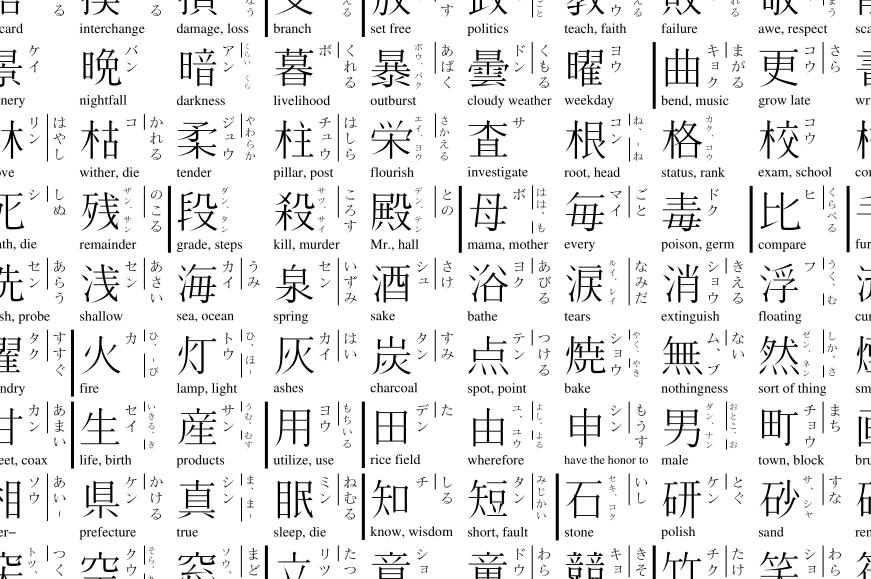 card interchange damage, loss branch set free politics teach, faith failure awe, respect
景 ケイ 晩 バン 暗 アン くらい くら 暮 ボ くれる 暴 ボウ、バク あばく 曇 ドン くもる 曜 ヨウ 曲 キョク まがる 更 コウ さら
nery nightfall darkness livelihood outburst cloudy weather weekday bend, music grow late
林 リン はやし 枯 コ かれる 柔 ジュウ やわらか 柱 チュウ はしら 栄 エイ、ヨウ さかえる 査 サ 根 コン ね、-ね 格 カク、コウ 校 コウ
ove wither, die tender pillar, post flourish investigate root, head status, rank exam, school
死 シ しぬ 残 ザン、サン のこる 段 ダン、タン 殺 サツ、サイ ころす 殿 デン、テン との 母 ボ はは、も 毎 マイ ごと 毒 ドク 比 ヒ くらべる
ath, die remainder grade, steps kill, murder Mr., hall mama, mother every poison, germ compare fur
洗 セン あらう 浅 セン あさい 海 カイ うみ 泉 セン いずみ 酒 シュ さけ 浴 ヨク あびる 涙 ルイ、レイ なみだ 消 ショウ きえる 浮 フ うく、む
sh, probe shallow sea, ocean spring sake bathe tears extinguish floating
濯 タク すすぐ 火 カ ひ、-び 灯 トウ ひ、ほ- 灰 カイ はい 炭 タン すみ 点 テン つける 焼 ショウ やく、やき 無 ム、ブ ない 然 ゼン、ネン しか、さ
ndry fire lamp, light ashes charcoal spot, point bake nothingness sort of thing
甘 カン あまい 生 セイ いきる、き 産 サン うむ むす 用 ヨウ もちいる 田 デン た 由 ユ、ユウ よし、よる 申 シン もうす 男 ダン、ナン おとこ、お 町 チョウ まち
eet, coax life, birth products utilize, use rice field wherefore have the honor to male town, block
相 ソウ あい- 県 ケン かける 真 シン ま、ま- 眠 ミン ねむる 知 チ しる 短 タン みじかい 石 セキ、コク いし 研 ケン とぐ 砂 サ、シャ すな
er– prefecture true sleep, die know, wisdom short, fault stone polish sand
突 トツ、 つく 空 クウ そら、 窓 ソウ、 まど 立 リツ たつ 章 ショ 童 ドウ わら 競 キョ きそ 竹 チク たけ 笑 ショ わら